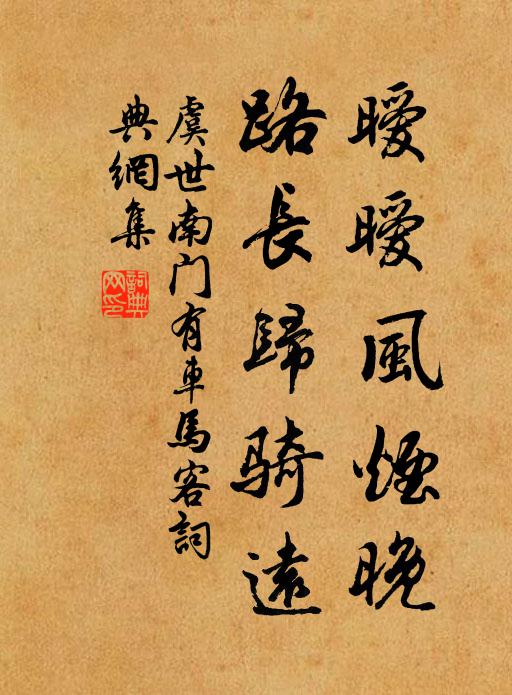 曖曖風煙晚
路長歸騎遠
虞世南门有車馬客詞
典網集
詞典网印